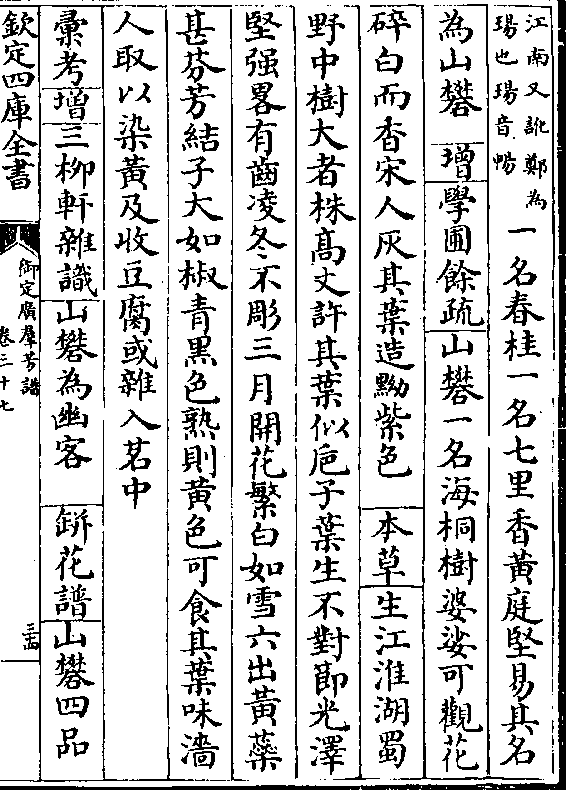 江南又訛鄭為
瑒也瑒音暢
一名春桂一名七里香黃庭堅易其名
為山礬 增學圃餘疏山礬一名海桐樹婆娑可觀花
碎白而香宋人灰其葉造黝紫色 本草生江淮湖蜀
野中樹大者株高丈許其葉似巵子葉生不對節光澤
堅强畧有齒凌冬不彫三月開花繁白如雪六出黃蘂
甚芬芳結子大如椒青黑色熟則黃色可食其葉味濇
人取以染黃及收豆腐或雜入茗中
彙考增三柳軒雜識山礬為幽客 缾花譜山礬四品
欽定四庫全書
御定廣羣芳譜
卷三十七
三西